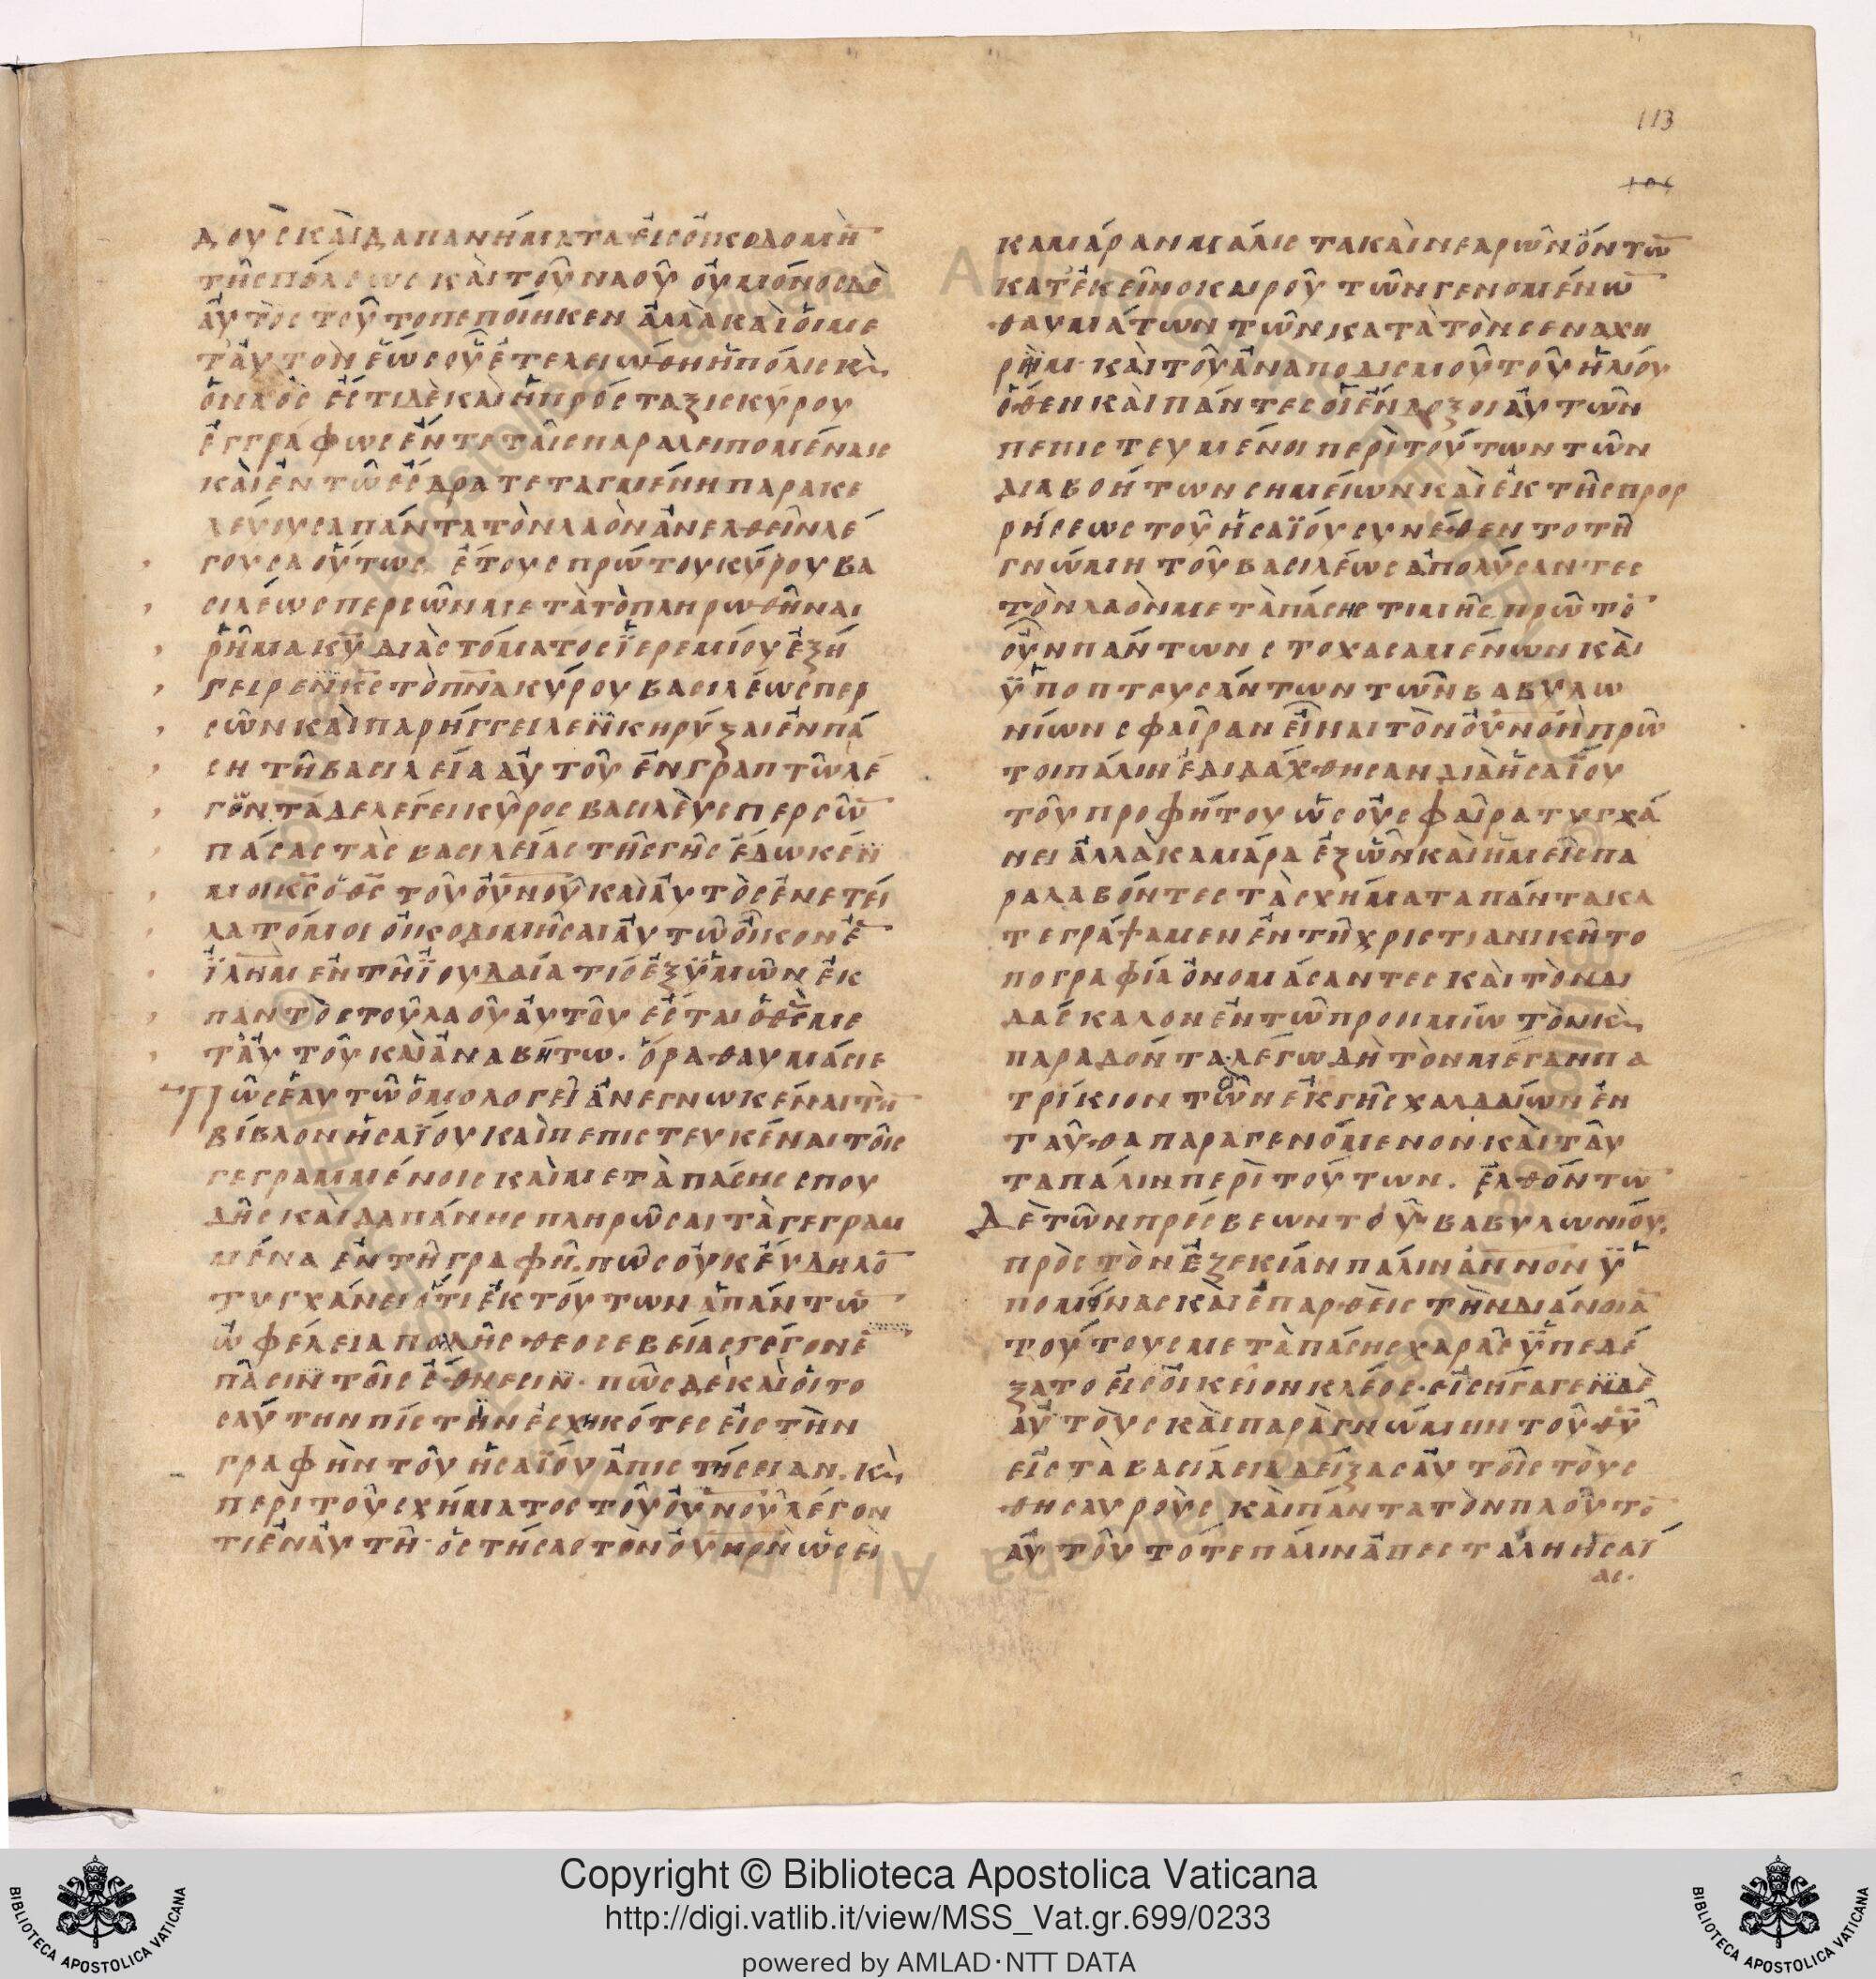 113
δουσκαὶδαπανήματαεἰσοἰκοδομὴ
τῆσπόλεωσκαὶτοῦναοῦοὐμόνοσδὲ
αὐτὸστοῦτοπεποίηκενἀλλὰκαὶοἱμε
τ᾽αὐτὸνἕωσοὗἐτελειώθηἡπόλισκὶ
ὁναόσἔστιδὲκαὶἡπρόσταξισκύρου
ἐγγράφωσἔντεταῖσπαραλειπομέναισ
καὶἐντῶἔσδρατεταγμένηπαρακε
λεύουσαπάντατὸνλαὸνἀνελθεῖνλέ
γουσαοὕτωσ ἔτουσπρώτουκύρουβα
σιλέωσπερσῶνμετὰτὸπληρωθῆναι
ῥῆμακῡδιὰστόματοσἱερεμίουἐξή
γειρενκ̄στὸπν̄ακύρουβασιλέωσπερ
σῶνκαὶπαρήγγειλενκηρύξαιἐνπά
σητῆβασιλείααὐτοῦἐνγραπτῶλέ
γοντάδελέγεικῦροσβασιλεὺσπερσῶ
πάσαστὰσβασιλείαστῆσγῆσἔδωκέν
μοικ̄σὁθ̄στοῦοὐνοῦκαὶαὐτὸσἐνετεί
λατόμοιοἰκοδομῆσαιαὐτῶοἶκονἐ
ἱλημἐντῆἰουδαίατίσἐξὑμῶνἐκ
παντὸστοῦλαοῦαὐτοῦἔσταιὁθ̄σμε
τ᾽αὐτοῦκαὶἀναβήτω. ὅραθαυμάσιε
πῶσἑαυτῶὁμολογεῖἀνεγνωκέναιτὴ
βίβλονἡσαΐουκαὶπεπιστευκέναιτοῖσ
γεγραμμένοισκαὶμετὰπάσησσπου
δῆσκαὶδαπάνησπληρῶσαιτὰγεγραμ
μέναἐντῆγραφῆ.πῶσοὐκεὔδηλο
τυγχάνειὅτιἐκτούτωνἁπάντω
ὠφέλειαπολλῆσθεοσεβείασγέγονε
πᾶσιντοῖσἔθνεσιν· πῶσδὲκαὶοἱτο
σαύτηνπίστινἐσχηκότεσεἰστὴν
γραφὴντοῦἡσαΐουἀπιστήσειαν. κὶ
περὶτοῦσχήματοστοῦοὐνοῦλέγον
τιἐναὐτῆ·ὁστήσαστὸνοὐνὸνὡσεὶ
καμάρανμάλιστακαὶνεαρῶνὄντω
κατ᾽ἐκεῖνοκαιροῦτῶνγενομένω
θαυμάτωντῶνκατὰτὸνσεναχη
ρὴμ·καὶτοῦἀναποδισμοῦτοῦἡλίου
ὅθενκαὶπάντεσοἱἔνδοξοιαὐτῶν
πεπιστευμένοιπερὶτούτωντῶν
διαβοήτωνσημείωνκαὶἐκτῆσπρορ
ρήσεωστοῦἡσαΐουσυνέθεντοτῆ
γνώμητοῦβασιλέωσἀπολύσαντεσ
τὸνλαὸνμετὰπάσηστιμῆσπρῶτο
οὖνπάντωνστοχασαμένωνκαὶ
ὑποπτευσάντωντῶνβαβυλω
νίωνσφαῖρανεἶναιτὸνοὐνόνπρῶ
τοιπάλινἐδιδάχθησανδιὰἡσαΐου
τοῦπροφήτουὡσοὐσφαῖρατυγχά
νειἀλλὰκαμάραἐξὧνκαὶἡμεῖσπα
ραλαβόντεστὰσχήματαπάντακα
τεγράψαμενἐντῆχριστιανικῆτο
πογραφίαὀνομάσαντεσκαὶτὸνδι
δάσκαλονἐντῶπροοιμίωτὸνκὶ
παραδόνταλέγωδὴτὸνμέγανπα
τρίκιοντῶνἐκγῆσχαλδαίωνἐν
ταῦθαπαραγενόμενον·καὶταῦ
ταπάλινπερὶτούτων. ἐλθόντω
δὲτῶνπρέσβεωντοῦβαβυλωνίου,
πρὸστὸνἐζεκίανπάλινἀν̄νονὑ
πομίνασκαὶἐπαρθεὶστὴνδιάνοια
τούτουσμετὰπάσησχαρᾶσὑπεδέ
ξατοεἰσοἰκεῖονκλέοσ·εἰσήγαγενδὲ
αὐτοὺσκαὶπαρὰγνώμηντοῦθῡ
εἰστὰβασίλειαδείξασαὐτοῖστοὺσ
θησαυροὺσκαὶπάντατὸνπλοῦτο
αὐτοῦτότεπάλινἀπεστάληἡσαΐ
ασ.
Copyright © Biblioteca Apostolica Vaticana
http://digi.vatlib.it/view/MSS_Vat.gr.699/0233
powered by AMLAD·NTT DATA
BIBLIOTECA APOSTOLICA VATICANA
BIBLIOTECA APOSTOLICA VATICANA